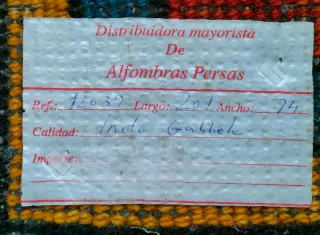 Distribuidora mayorista
De
Alfombras Persas
Ref.: 12039 Largo: 201 Ancho: 74
Calidad: Indo Gabbeh
Importe: